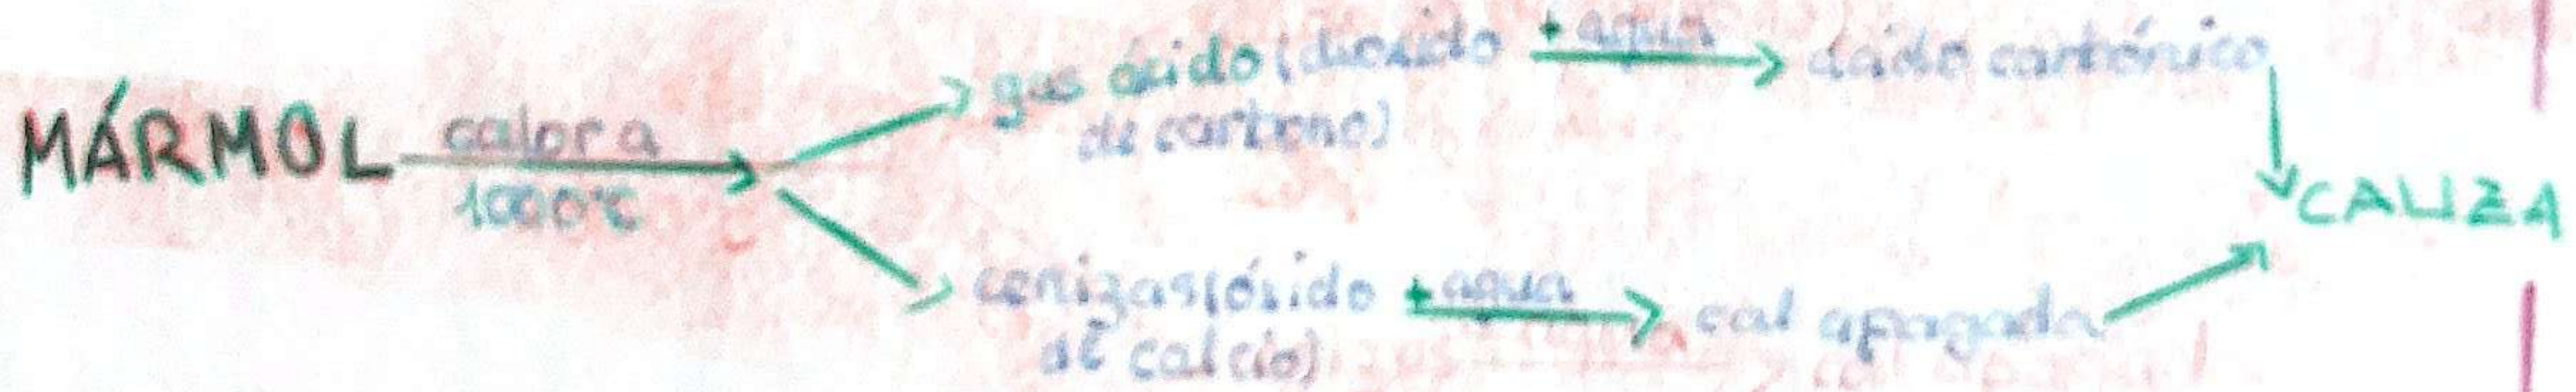 MÁRMOL
calor a
1000℃
gas ácido (dióxido
de carbono)
+ agua
ácido carbónico
cenizas (óxido
de calcio)
+ agua
cal apagada
CALIZA